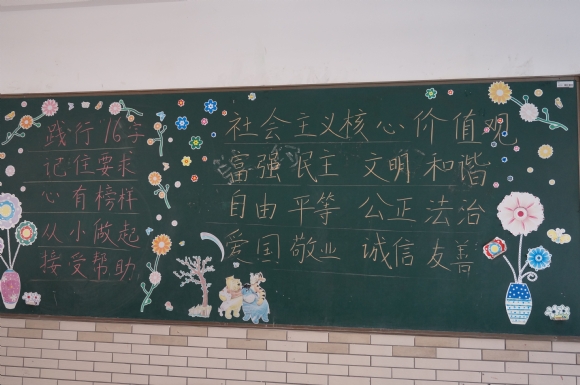 践行16字
记住要求
心有榜样
从小做起
接受帮助
社会主义核心价值观
富强 民主 文明 和谐
自由 平等 公正 法治
爱国 敬业 诚信 友善